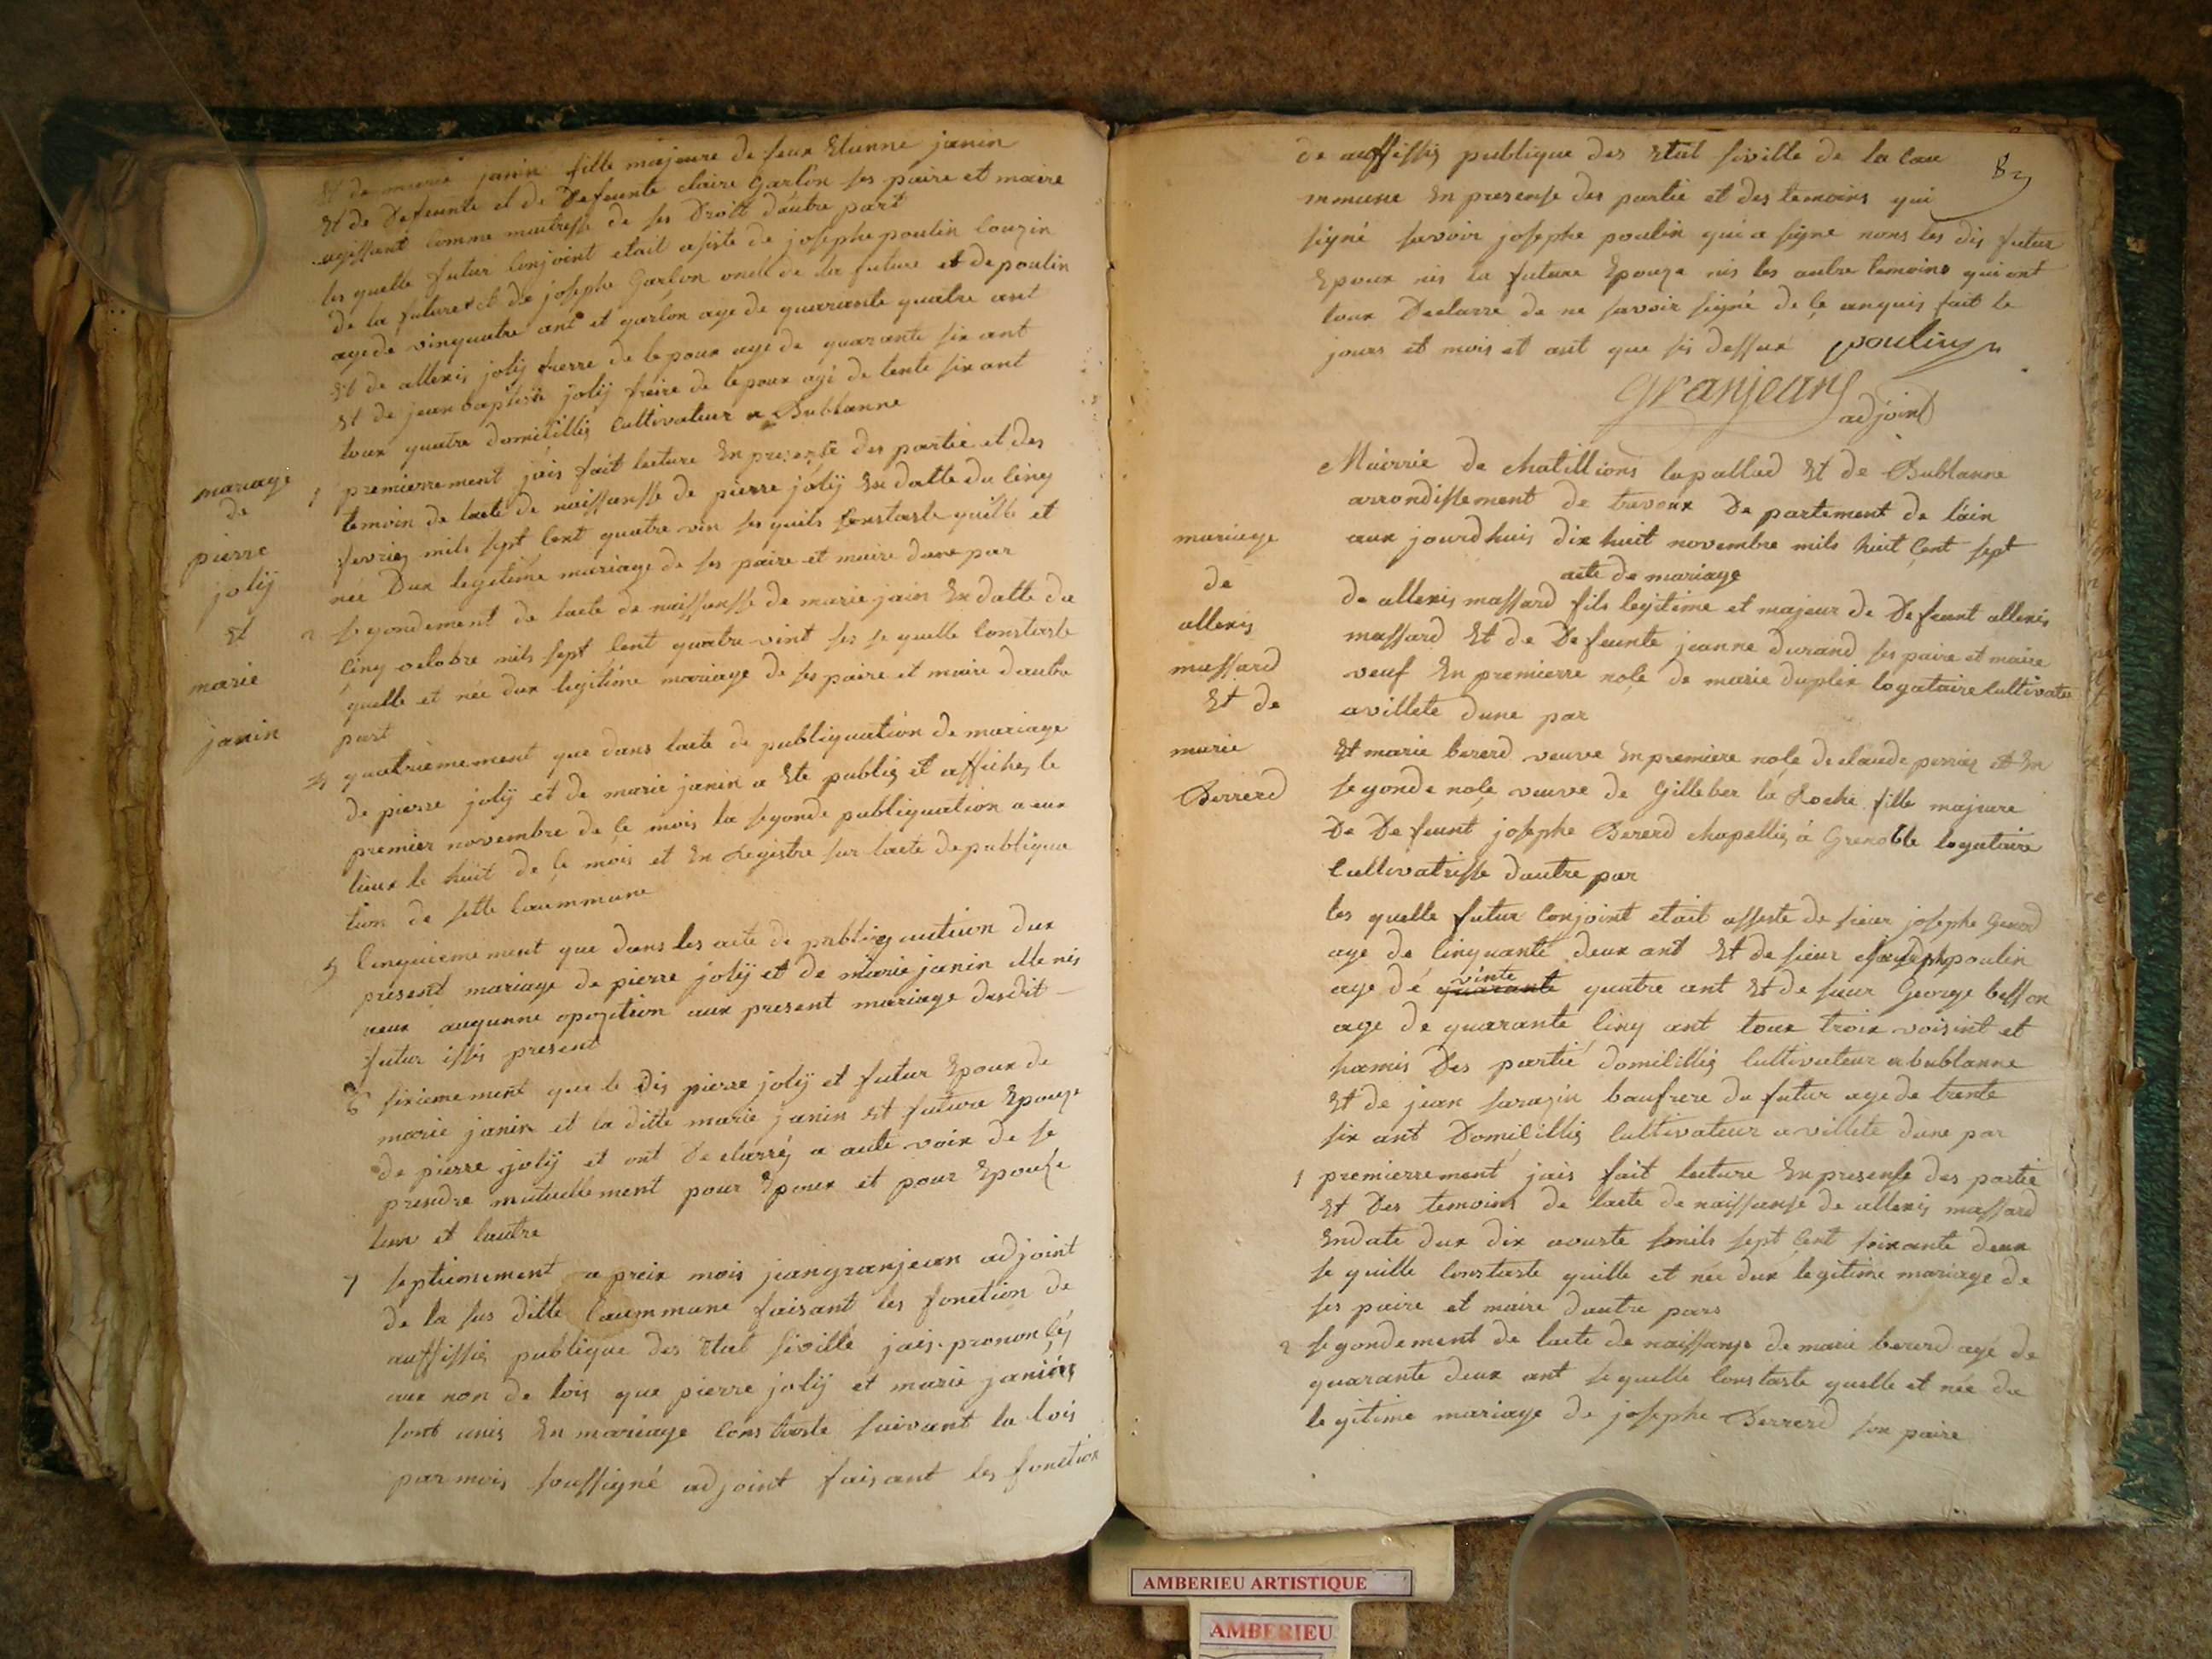 Et de marie janin fille majeure de feux Etienne janin
Et de Defeunte et de Defeunte claire Garlon ses paire et maire
agissent comme maitresse de ses Droitt dautre part
les quelle futur Conjoint etait asiste de josephe poulin Couzin
de la future et de josephe Garlon oncle de la future et de poulin
age de vinquatre ant et garlon age de quarante quatre ant
Et de allexis jolÿ frerre de lepoux age de quarante six ant
Et de jean baptiste jolÿ freire de lepoux agé de tente six ant
toux quatre domicilliez Cultivateur a Bublanne
mariage
de
pierre
jolÿ
Et
marie
janin
1 premierrement jais fait lecture En presense des partie et des
temoin de lacte de naissansse de pierre jolÿ En datte du cinq
fevriez mils sept Cent quatre vin ses quils Constaste quille et
née Dux legitime mariage de ses paire et maire dune par
2 segondement de lacte de naissansse de marie janin En datte du
cinq octobre mils sept Cent quatre vint ses se quelle Constaste
quelle et née dux legitime mariage de ses paire et maire dautre
part
4 quatriemement que dans lacte de publiquation de mariage
de pierre jolÿ et de marie janin a Ete publiez et affichez le
premier novembre de çe mois la segonde publiquation a eux
lieux le huit de çe mois et En Registre sur lacte de publiqua
tion de sette Coummune
5 Cinquiemement que dans les acte de publiquation dux
present mariage de pierre jolÿ et de marie janin ille nis
aeux augunne opozition aux present mariage desdit
futur issis present
6 sixiemement que le dis pierre jolÿ et futur Epoux de
marie janin et la ditte marie janin Et future Epouze
de pierre jolÿ et ont Declarréz a aute voix de se
prendre mutuellement pour Epoux et pour Epouse
lun et lautre
7 septiemement apreix mois jeangranjean adjoint
de la sus ditte Coummune faisant les fonction de
auffissiez publique des Etat siville jais prononçéz
aux non de lois que pierre jolÿ et marie janin
sont unis En mariage Constaste suivant la lois
par mois soussigné adjoint faisant les fonction
82
de auffissiez publique des Etat siville de la Cou
mmune En presense des partie et des temoins qui
signé savoir josephe poulin qui a signe nons les dis futur
Epoux nis la future Epouze nis les autre temoins qui ont
toux Declarre de ne savoir signé de çe anquis fait le
jours et mois et ant que sis dessux poulin
Granjean
adjoint
Mairrie de chatillions lapallud Et de Bublanne
arrondissement de trevoux Departement de láin
aux jourdhuis dix huit novembre mils huit Cent sept
mariage
de
allexis
massard
Et de
marie
Berrerd
acte de mariage
de allexis massard fils legitime et majeur de Defeunt allexis
massard Et de Defeunte jeanne durand ses paire et maire
veuf En premierre noçe de marie duplex logataire Cultivateu
avillete dune par
Et marie bererd veuve En premiere noçe de claude perriez et En
segonde noçe veuve de Gilleber la Roche fille majeure
De Defeunt josephe Bererd chapelliez á Grenoble logataire
Cultivatrisse dautre par
les quelle futur Conjoint etait assiste de sieur josephe Genod
age de Cinquante deux ant Et de sieur josephpoulin
age dé quarante vinte quatre ant Et de sieur George besson
age de quarante Cinq ant toux troix voisint et
hamis Des partie domicilliez Cultivateur a bublanne
Et de jean sarazin baufrere du futur age de trente
six ant Domicilliez Cultivateur avillete dune par
1 premierrement jais fait lecture En presense des partie
Et Des temoins de lacte de naissanse de allexis massard
En date dux dix aouste mils sept Cent soixante deux
se quille Constaste quille et née dux legitime mariage de
ses paire et maire dautre pars
2 segondement de lacte de naissanse de marie bererd agé de
quarante deux ant se quelle Constaste quelle et née du
legitime mariage de josephe Berrerd son paire
AMBERIEU ARTISTIQUE
AMBERIEU